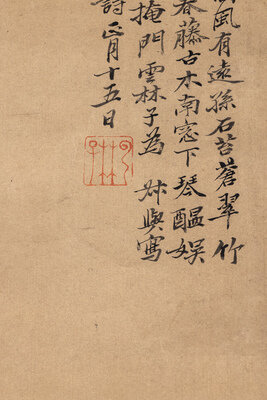 風有遠孫石苔蒼翠竹
春藤古木南窓下琴醞娛
掩門雲林子為叔輿寫
詩正月十五日